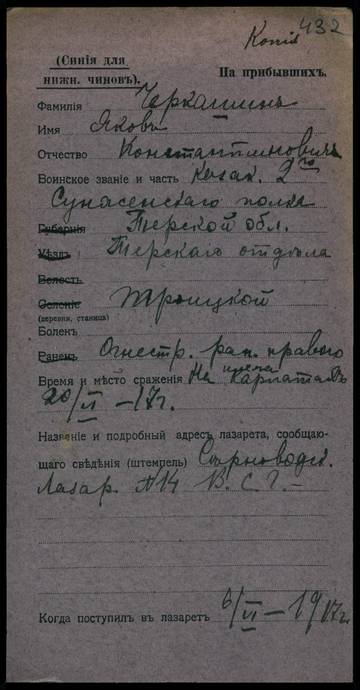 Копія 432
(Синія для
нижн. чиновъ).
На прибывшихъ.
Фамилія Черкашинъ
Имя Яковъ
Отчество Константиновичъ
Воинское званіе и часть Казак. 2го
Сунженскаго полка
Губернія Терской обл.
Уѣздъ Терскаго отдѣла
Волость
Селеніе Троицкой
(деревня, станица)
Боленъ
Раненъ Огнестр. ран. праваго
Время и мѣсто сраженія На Карпатахъ
20/VI – 17 г.
Названіе и подробный адресъ лазарета, сообщаю-
щаго свѣдѣнія (штемпель)
Лазар. №14 В. С. Г. –
Когда поступилъ въ лазаретъ 6/VI – 1917 г.